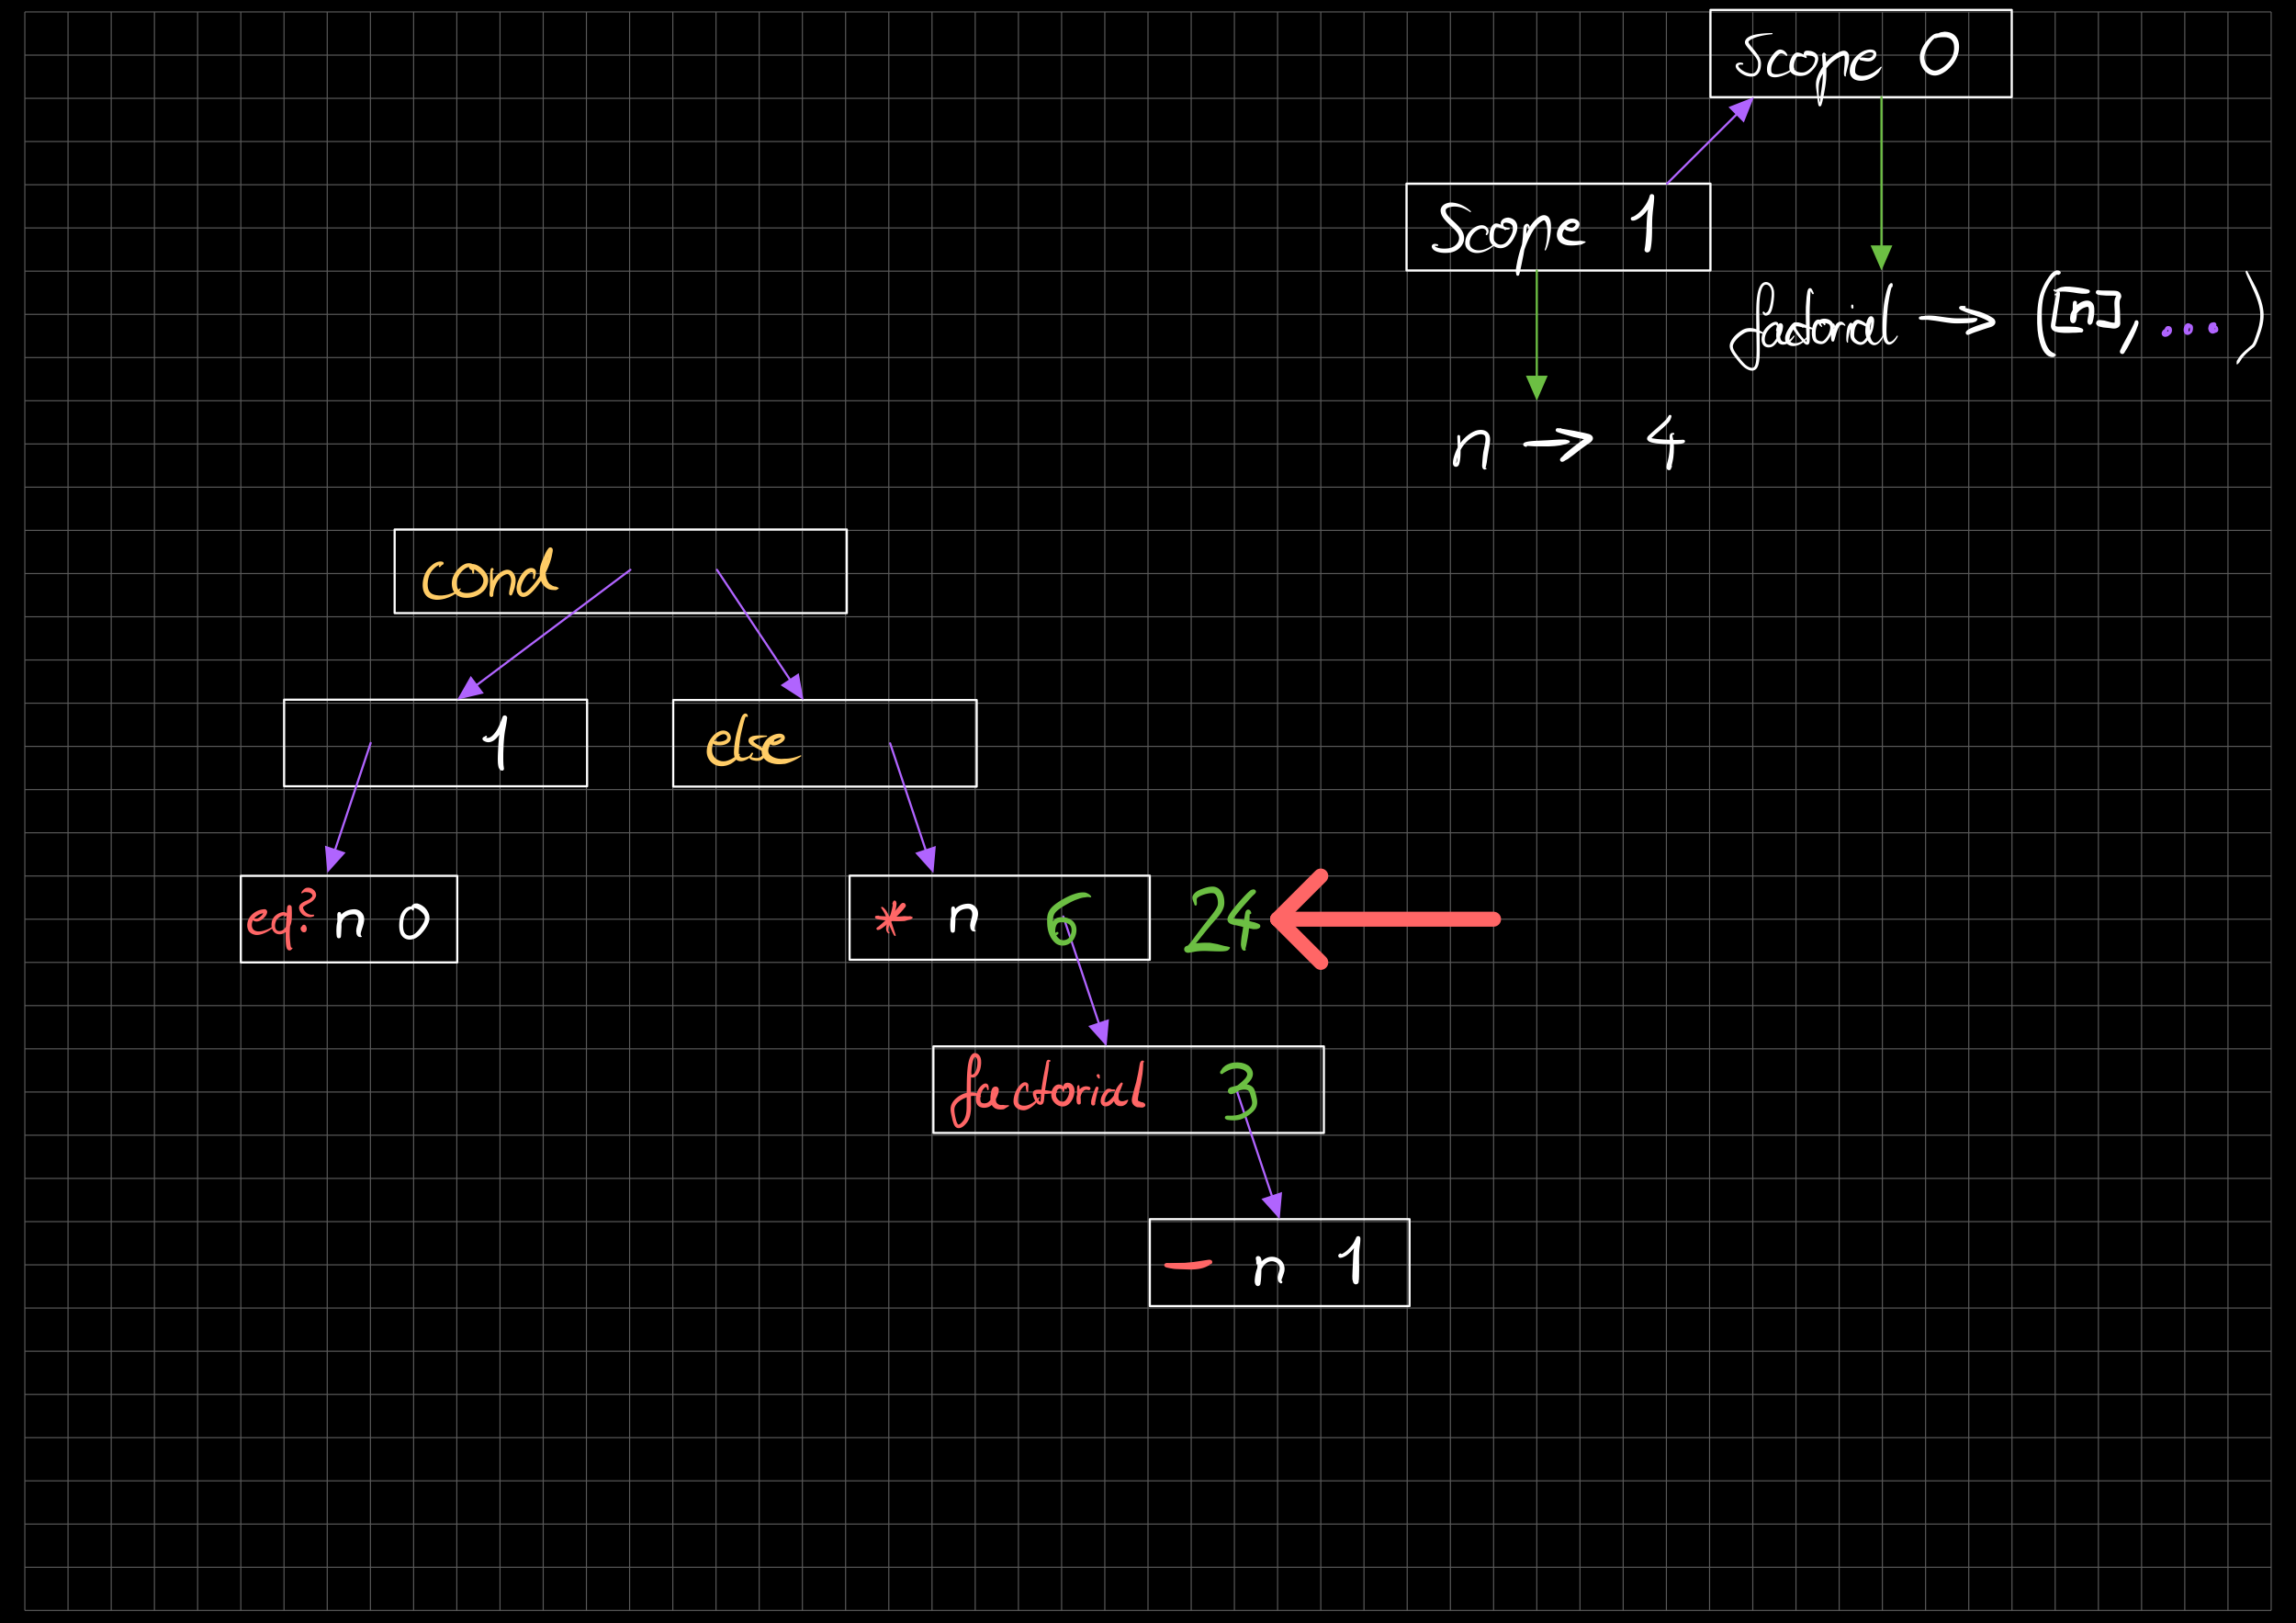 Scope 0
Scope 1
factorial → ([n], ...)
n → 4
cond
1
else
eq? n 0
* n 6 24
factorial 3
- n 1